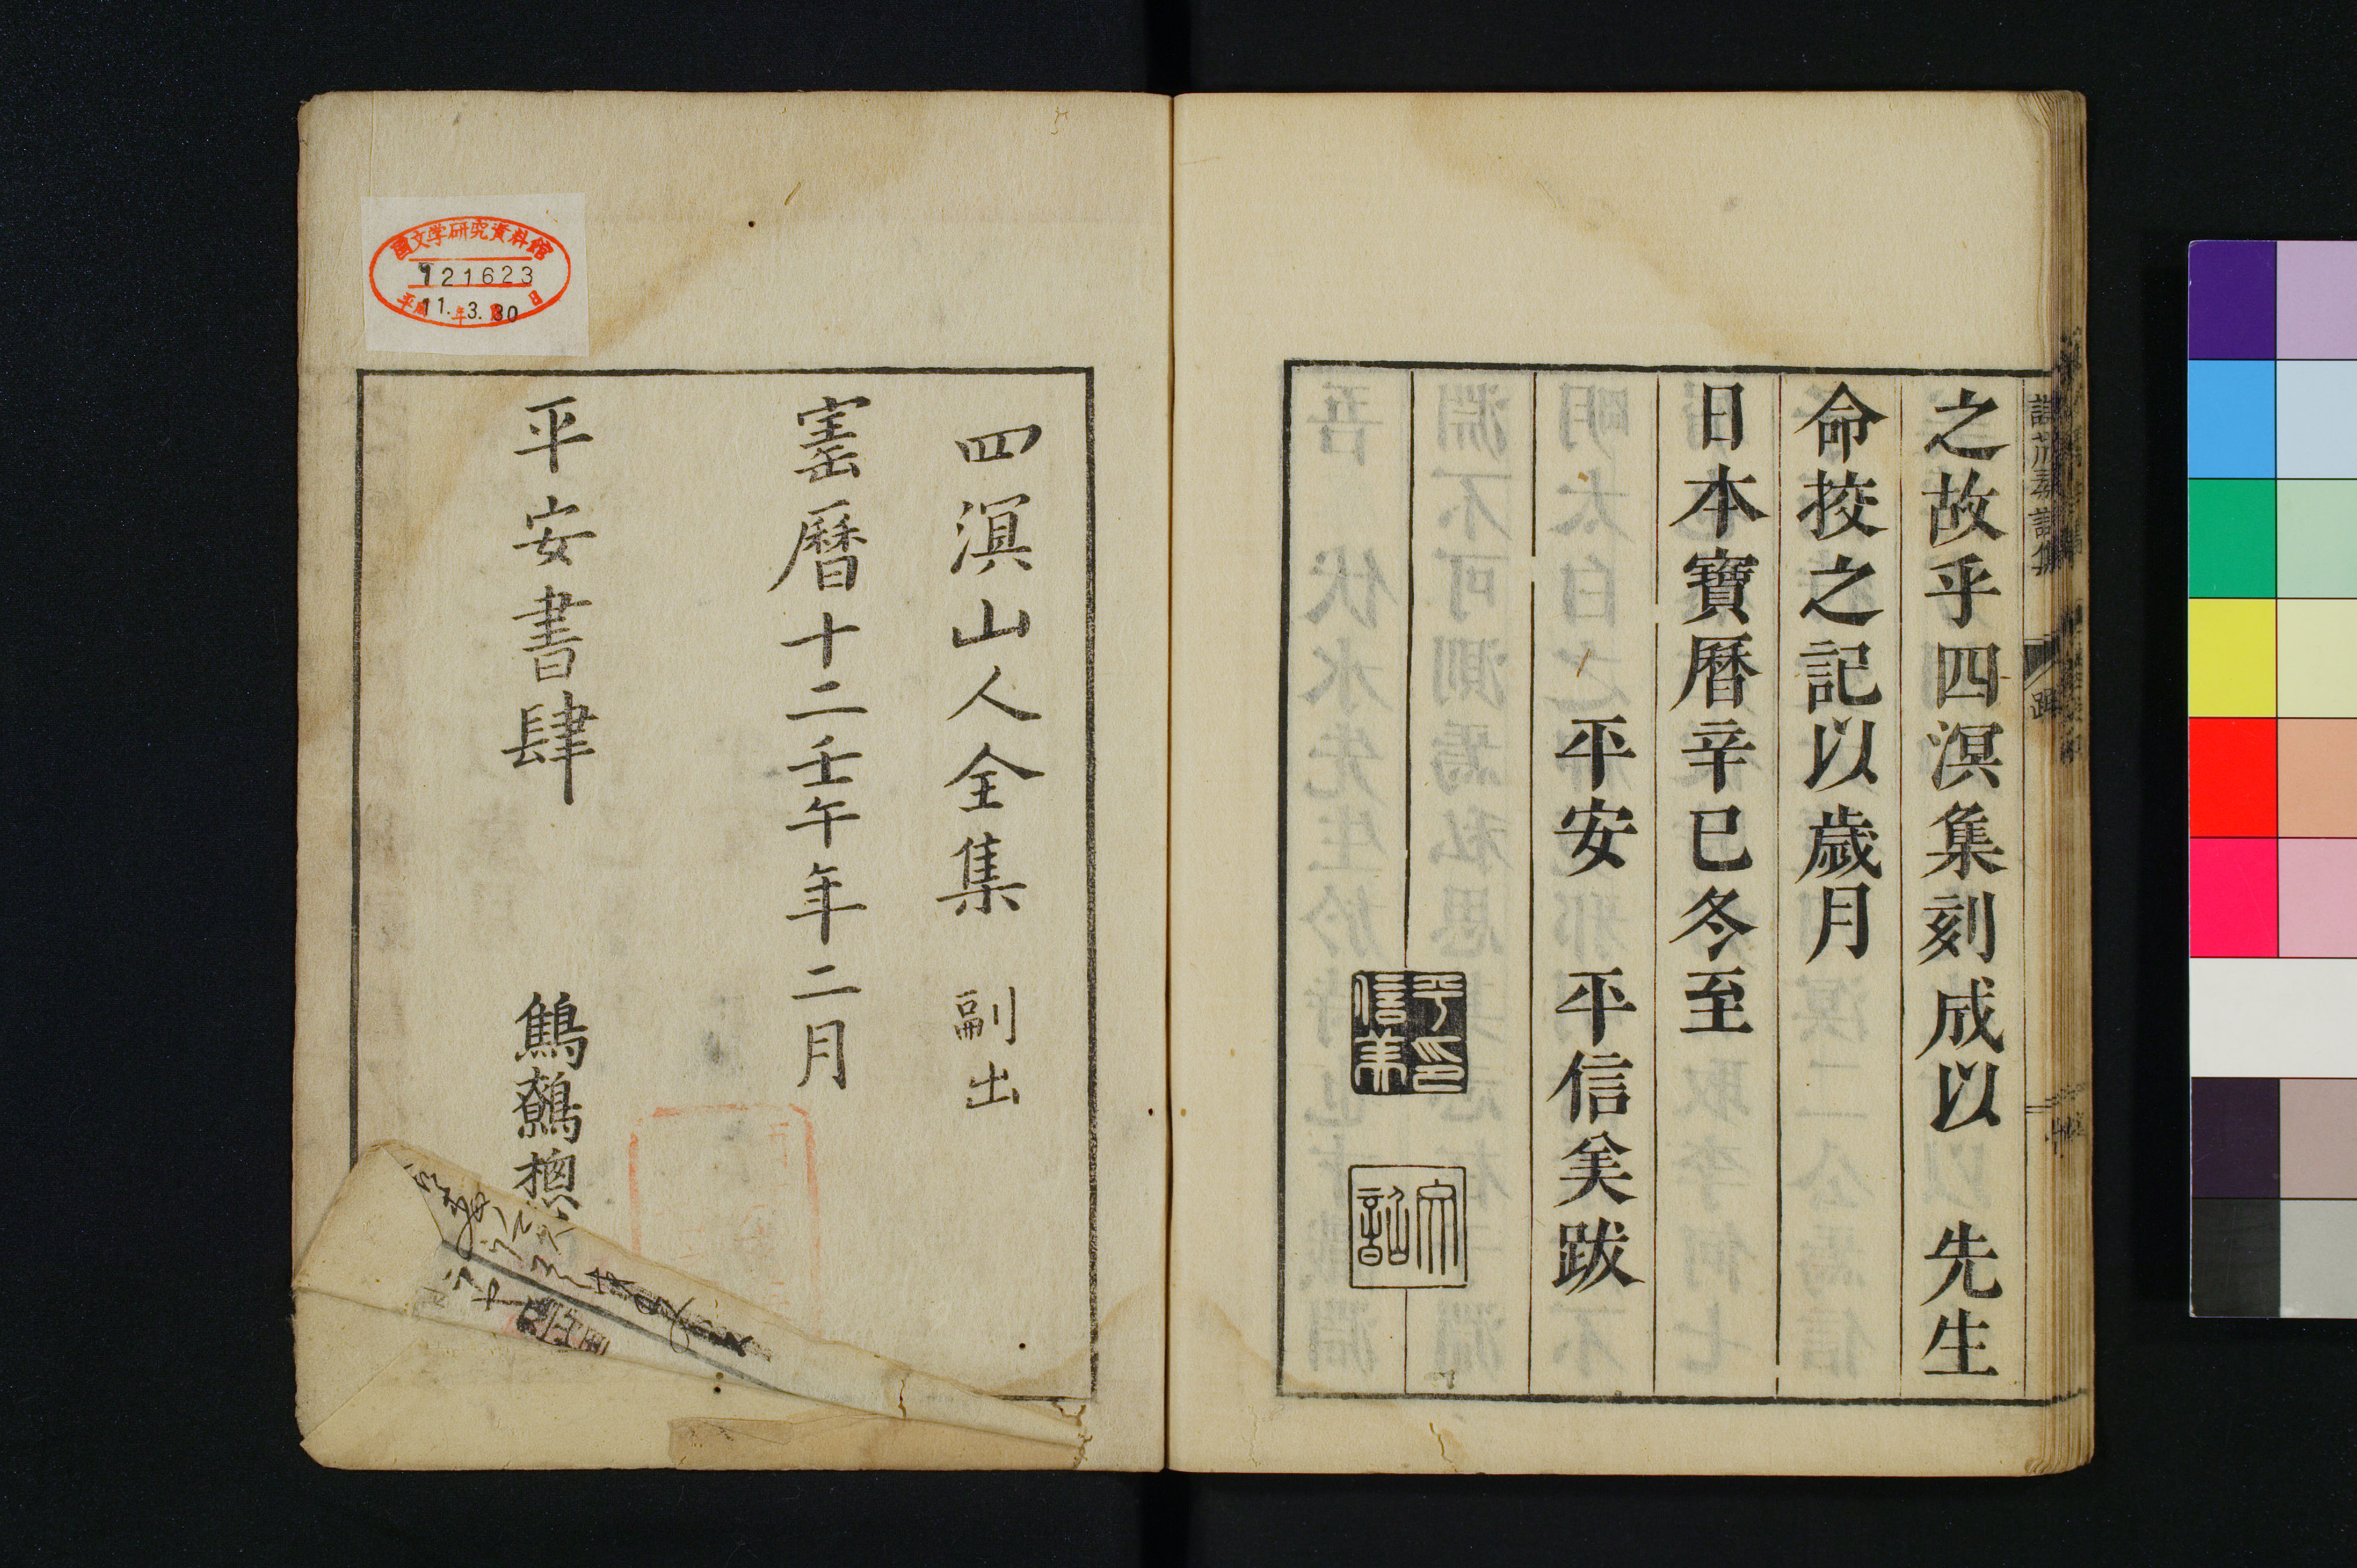 之故乎四溟集刻成以　先生
命挍之記以歳月
日本寶曆辛巳冬至
平安　平信美跋
四溟山人全集　副出
寚曆十二壬午年二月
平安書肆　鷦鷯摠
国文学研究資料館
121623
平成11年3.30日